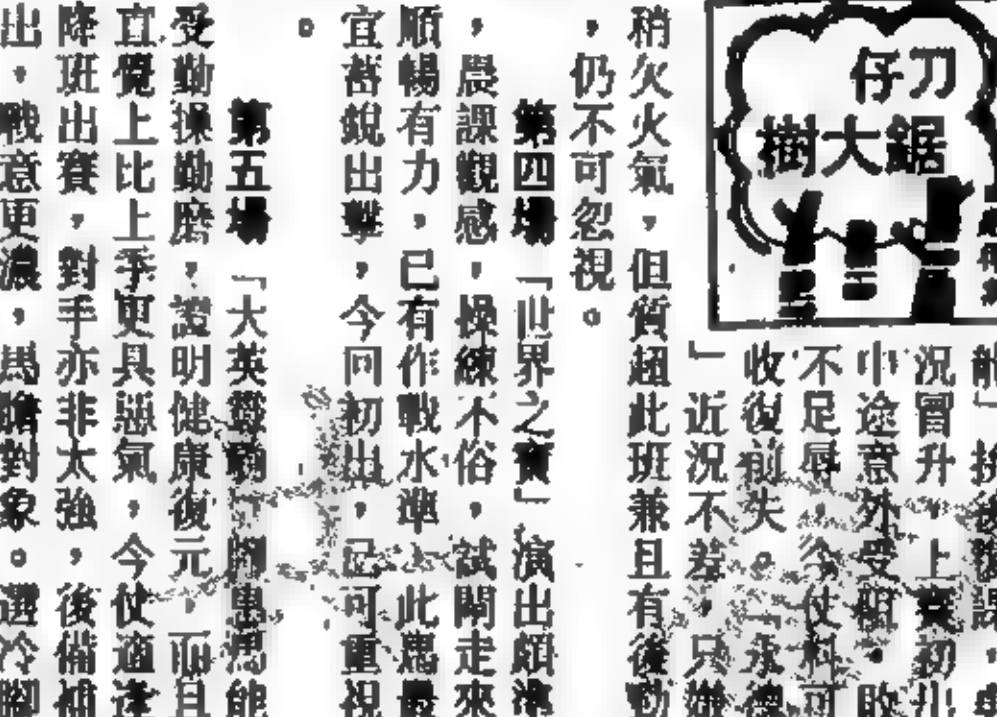 刀仔
鋸大樹
況冒升，上賽初出
中途意外受阻。敗
不足辱，今仗料可
收復前失。「永德
」近況不差，只嫌
稍欠火氣，但質超此班兼且有後勁
，仍不可忽視。
第四場「世界之寶」演出頗準
，晨課觀感，操練不俗，試閘走來
順暢有力，已有作戰水準，此駒最
宜蓄銳出擊，今回初出，已可重視
。
第五場「大英雄
受勤操勤磨，證明健康復元，而且
直覺上比上季更具惡氣，今仗適逢
降班出賽，對手亦非太強，後備補
出，戰意更濃，馬膽對象。選冷腳